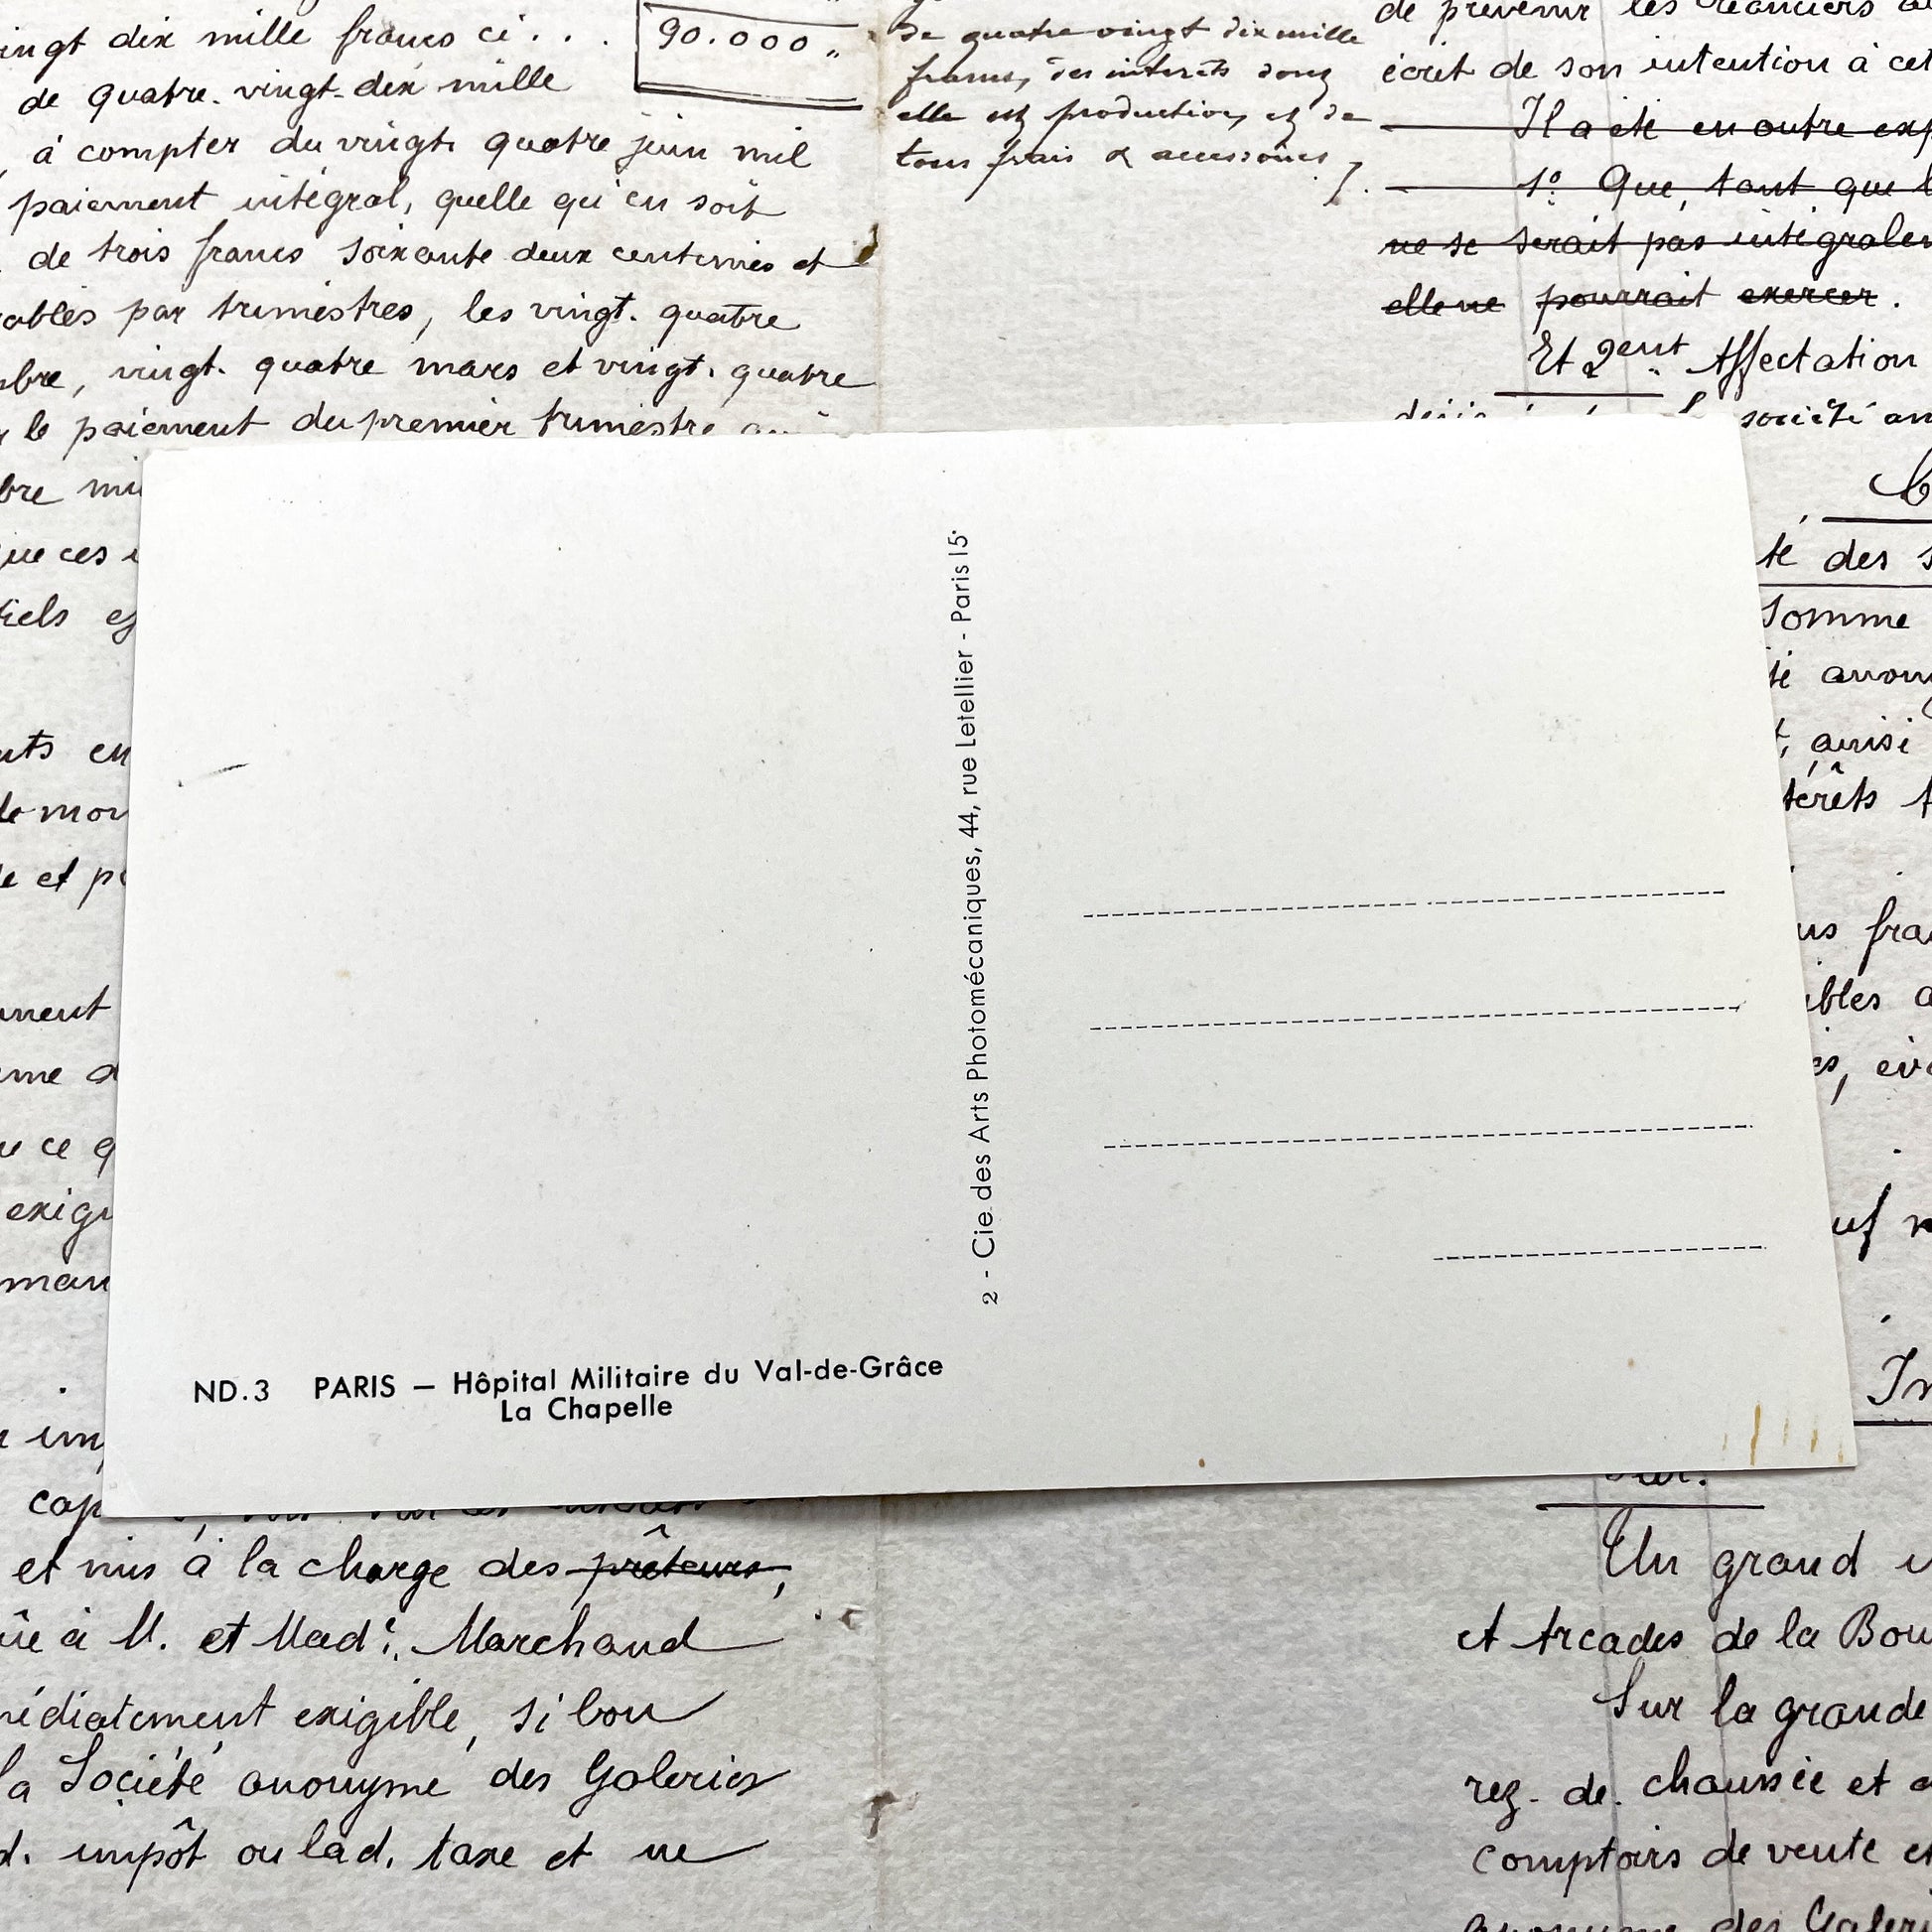 ingt dix mille francs ci . . .
90.000 "
de quatre-vingt-dix mille
à compter du vingt quatre juin mil
paiement intégral, quelle qu'en soit
de trois francs soixante deux centimes et
ables par trimestres, les vingt-quatre
bre, vingt-quatre mars et vingt-quatre
le paiement du premier trimestre
bre mi
que ces
tiels
nts en
de mon
e et p
ment
me d
ce q
exig
man
im
cap
et mis à la charge des prêteurs,
ue à M. et Made. Marchand
médiatement exigible, si bon
la Société anonyme des Galeries
d. impôt ou lad. taxe et ne
de quatre vingt dix mille
francs, des intérêts dont
elle est production, et de
tous frais & accessoires /.
de prévenir les créanciers
écrit de son intention à cet
Il a été en outre exp
1º. Que, tant que l
ne se serait pas intégralem
elle ne pourrait exercer.
Et 2ent. Affectation
société an
té des s
Somme
té anony
t, ainsi
térêts
us fra
ibles a
es, év
uf
In
Un grand
et Arcades de la Bou
Sur la grande
rez-de-chaussée et a
comptoirs de vente et
anonyme des Galeri
2 - Cie. des Arts Photomécaniques, 44, rue Letellier - Paris 15e
ND.3 PARIS — Hôpital Militaire du Val-de-Grâce
La Chapelle